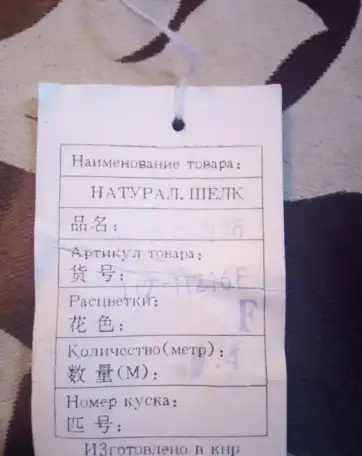 Наименование товара:
НАТУРАЛ. ШЁЛК
品名:
Артикул товара:
货号:
Расцветки:
花色: F
Количество(метр):
数量(М):
Номер куска:
匹号:
ИЗготовлено в кнр